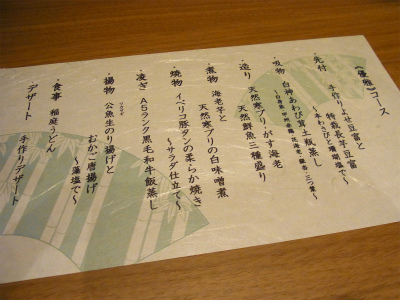 《優雅》コース
・先付 手作りよせ豆富と
特松長芋豆富
～本わさびと珊瑚塩で～
・吸物 白神あわび茸土瓶蒸し
・造り 天然寒ブリ がす海老
天然鮮魚三種盛り
・煮物 海老芋と
天然寒ブリの白味噌煮
・焼物 イベリコ豚タンの柔らか焼き
～サラダ仕立て～
・凌ぎ A5ランク黒毛和牛飯蒸し
・揚物 公魚生のり揚げと
おかこ唐揚げ
～藻塩で～
・食事 稲庭うどん
・デザート 手作りデザート